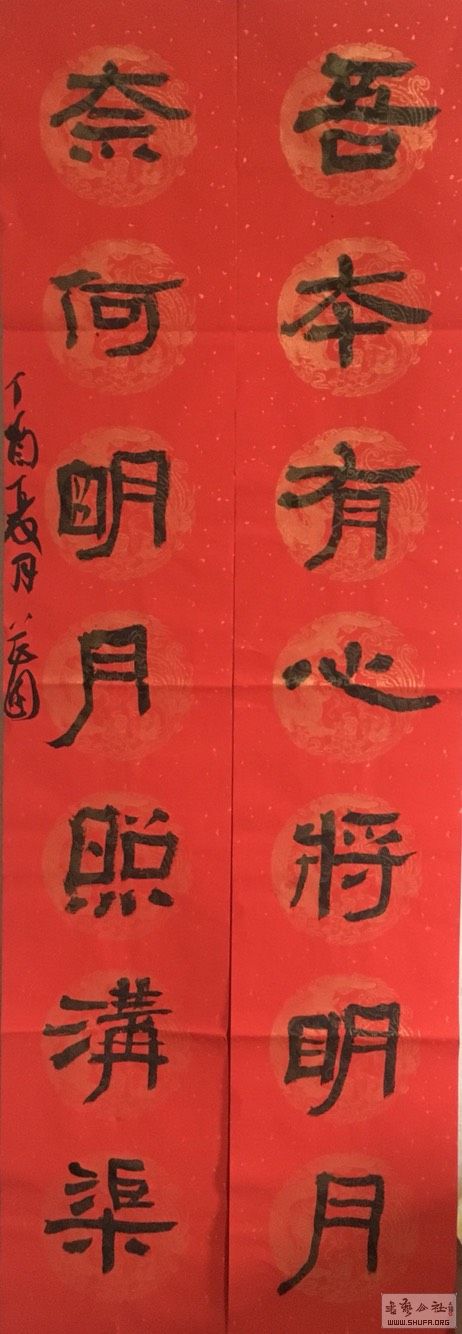 吾本有心將明月
奈何明月照溝渠
丁酉夏月
WWW.SHUFA.ORG